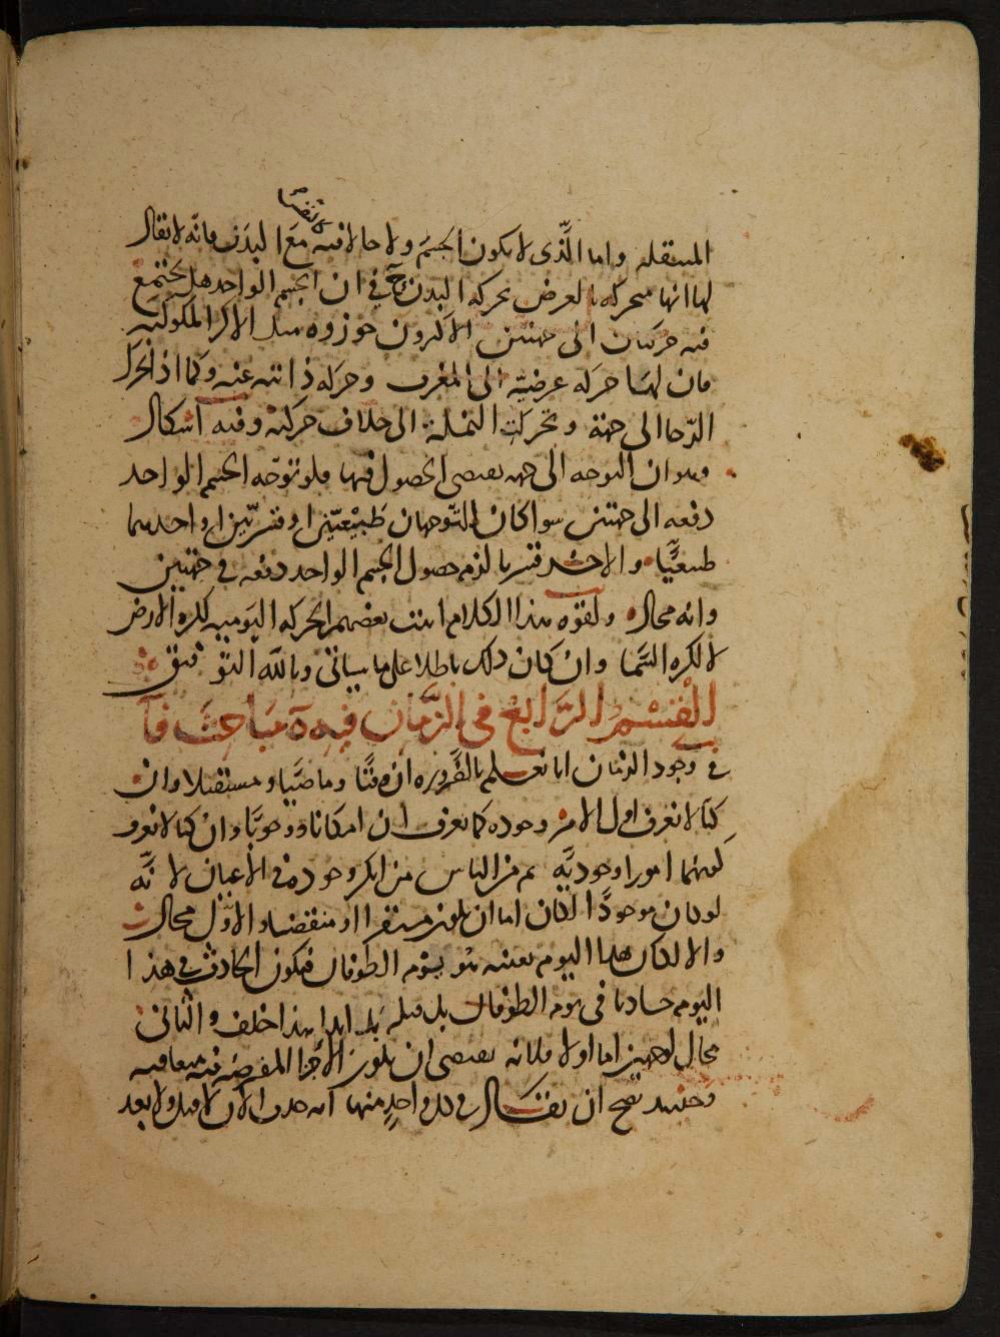 كالنفس
المستقله واما الذى لا يكون الجسم ولا حالا فيه مع البدن فانه لا يقال
لها انها متحركه بالعرض بحركه البدن ح فى ان الجسم الواحد هل يجتمع
فيه حركتان الى جهتين الاكثرون جوزوه مثل الاكر الملكوكبه
فان لها حركه عرضية الى المغرب وحركه ذاتيه عنه وكما اذا تحرك
الرحا الى جهة وتحركت النملة الى خلاف حركته وفيه اشكال
وهو ان التوجه الى جهه يقتضى الحصول فيها فلو توجه الجسم الواحد
دفعه الى جهتين سوا كان التوجهان طبيعيّين او قسريّين او احدهما
طبيعيًّا والاخر قسريا لزم حصول الجسم الواحد دفعه فى جهتين
وانه محال ولقوه هذا الكلام اثبت بعضهم الحركه اليوميه لكره الارض
لا لكره السما وان كان ذلك باطلا على ما سياتى وبالله التوفيق
القسم الرابع فى الزمان فيه ه مباحث فآ
فى وجود الزمان انا نعلم بالضروره ان وقتًا وماضيًا ومستقبلا وان
كنا لا نعرف اول الامر وجوده كما نعرف ان امكانا ووجوبًا وان كنا لا نعرف
كونهما امورا وجوديّه ثم من الناس من انكر وجوده فى الاعيان لانّه
لو كان موجودًا لكان اما ان يكون مستقرا او منقضيا والاوّل محال
والا لكان هذا اليوم بعينه هو يوم الطوفان فيكون الحادث فى هذا
اليوم حادثا فى يوم الطوفان بل قبله بل ابدا هذا خلف والثانى
محال لوجهين اما اولا فلانه يقتضى ان يكون الاجزا المفرضه فيه متعاقبه
وحينئذ يصح ان يقال فى كل واحدٍ منها انه حدث الان لا قبل ولا بعد